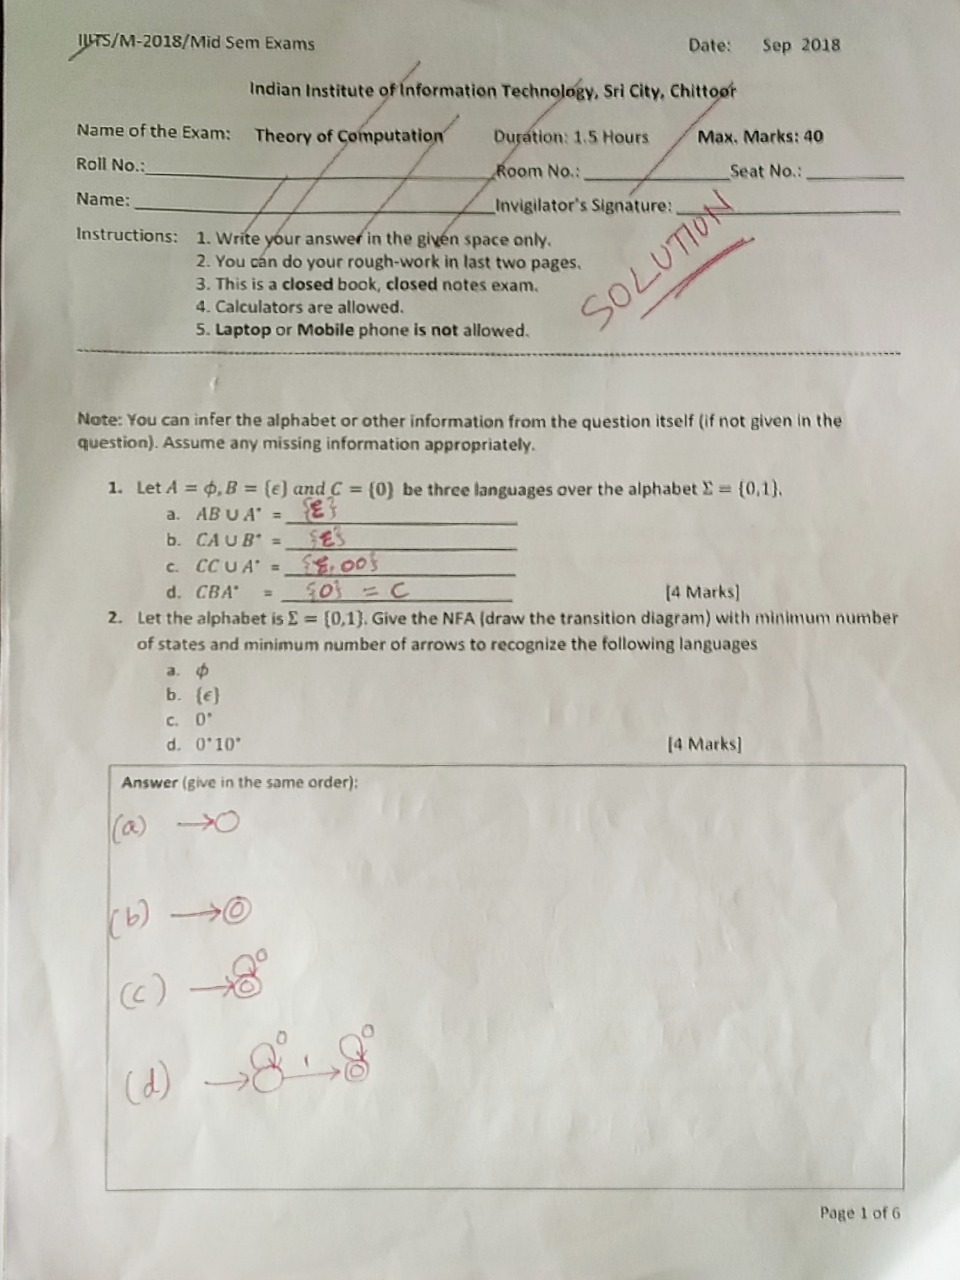 IIITS/M-2018/Mid Sem Exams Date: Sep 2018
Indian Institute of Information Technology, Sri City, Chittoor
Name of the Exam: Theory of Computation Duration: 1.5 Hours Max. Marks: 40
Roll No.: Room No.: Seat No.:
Name: Invigilator's Signature:
SOLUTION
Instructions: 1. Write your answer in the given space only.
2. You can do your rough-work in last two pages.
3. This is a closed book, closed notes exam.
4. Calculators are allowed.
5. Laptop or Mobile phone is not allowed.
Note: You can infer the alphabet or other information from the question itself (if not given in the
question). Assume any missing information appropriately.
1. Let A = ϕ, B = {ϵ} and C = {0} be three languages over the alphabet Σ = {0,1}.
a. AB ∪ A* = {ε}
b. CA ∪ B* = {ε}
c. CC ∪ A* = {ε, 00}
d. CBA* = {0} = C [4 Marks]
2. Let the alphabet is Σ = {0,1}. Give the NFA (draw the transition diagram) with minimum number
of states and minimum number of arrows to recognize the following languages
a. ϕ
b. {ϵ}
c. 0*
d. 0*10* [4 Marks]
Answer (give in the same order):
(a)
(b)
(c) 0
(d) 0 1 0
Page 1 of 6